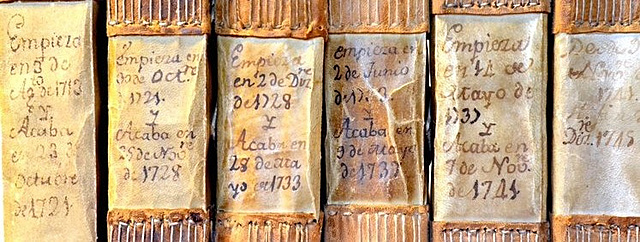 Empieza
en 9 de
Ag.to de 1713
Y
Acaba
en 23 de
Octubre
de 1721
Empieza en
de Octre
1721.
Y
Acaba en
25 de Nov.re
de 1728
Empieza
en 2 de Dizre
de 1728
Y
Acaba en
28 de Ma
yo de 1733
Empieza en
2 de Junio
Y
Acaba en
9 de Mayo
de 1737
Empieza
en 14 de
Mayo de
1737
Y
Acaba en
7 de Nov.
de 1741
Desde
Nov.re
1741
Diz.re 1745